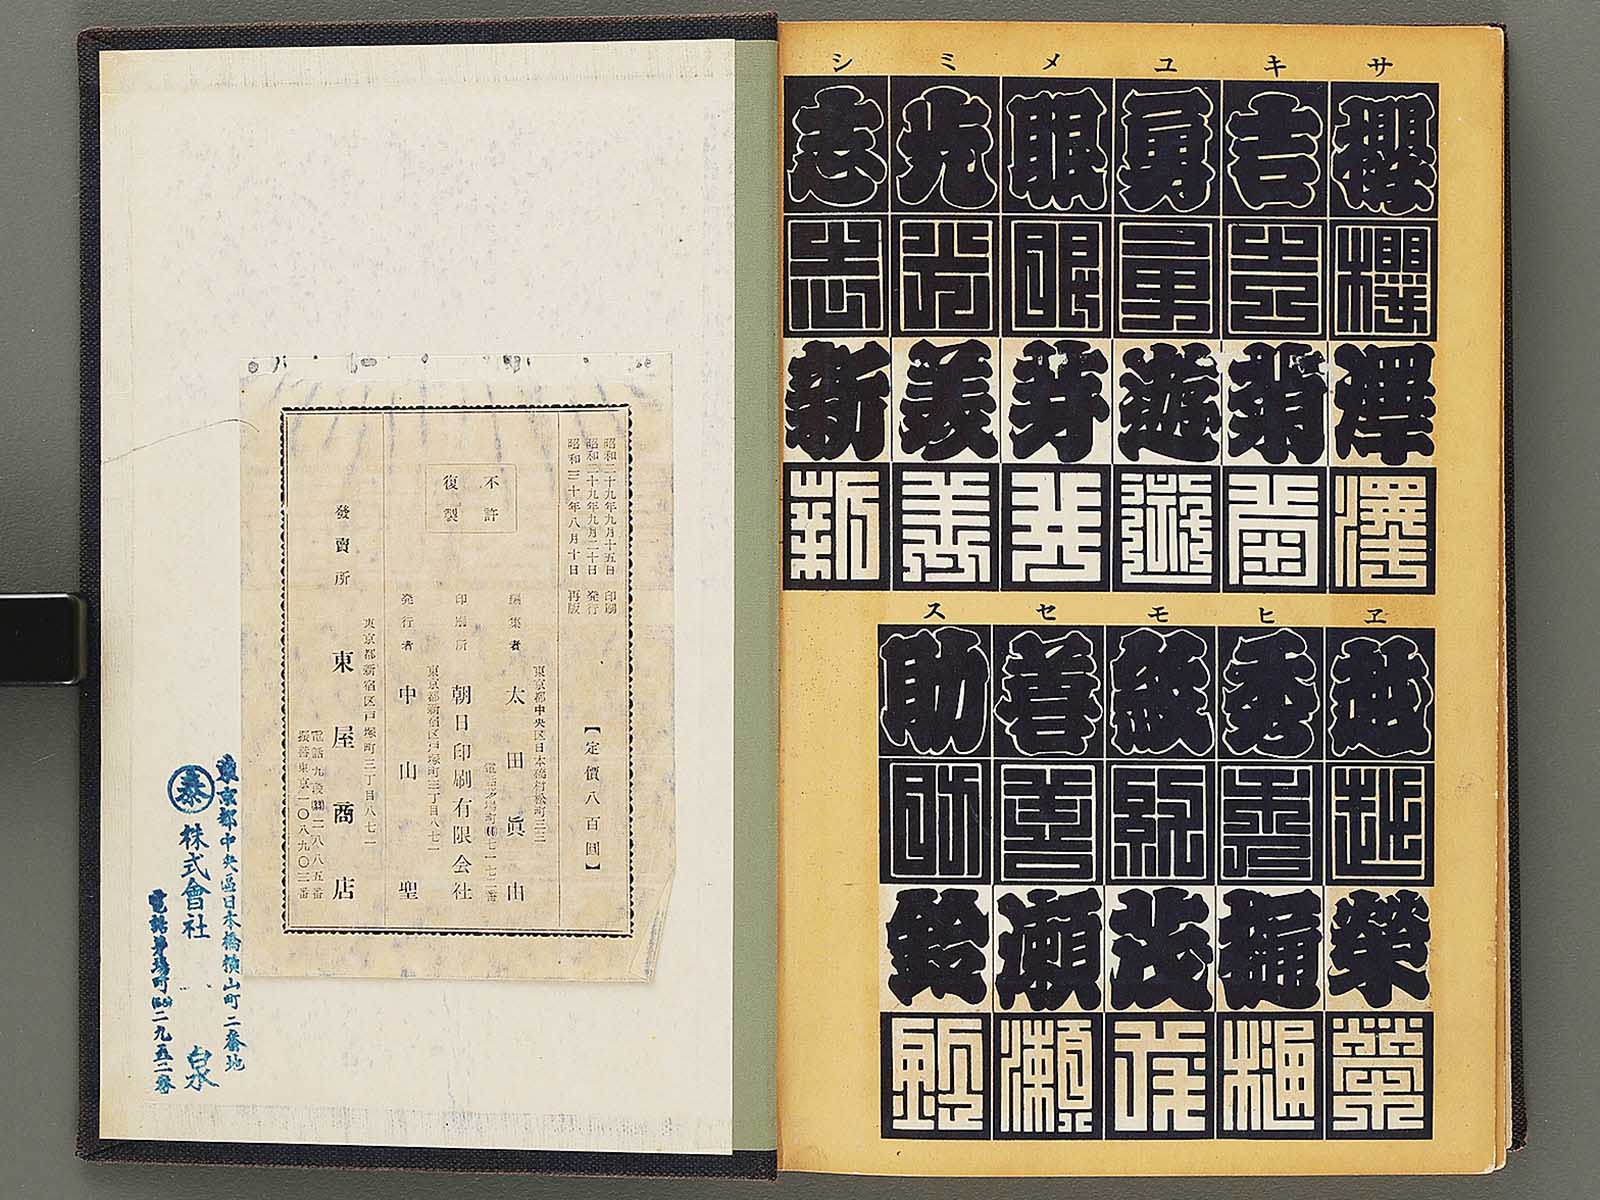 サ キ ユ メ ミ シ
櫻 吉 勇 眼 光 志
櫻 吉 勇 眼 光 志
澤 菊 遊 芽 美 新
澤 菊 遊 芽 美 新
ヱ ヒ モ セ ス
越 秀 紋 善 助
越 秀 紋 善 助
榮 樋 茂 瀬 鈴
榮 樋 茂 瀬 鈴
昭和二十九年九月十五日 印刷
昭和二十九年九月二十日 発行
昭和三十年八月十日 再版
【定價八百圓】
不許
復製
東京都中央区日本橋村松町三二
編集者 太田眞由
印刷所 朝日印刷有限会社
東京都新宿区戸塚町三丁目八七二
発行者 中山聖
東京都新宿区戸塚町三丁目八七二
發賣所 東屋商店
振替東京一〇八九〇三番
東京都中央區日本橋横山町二番地
泰 株式會社
白泉